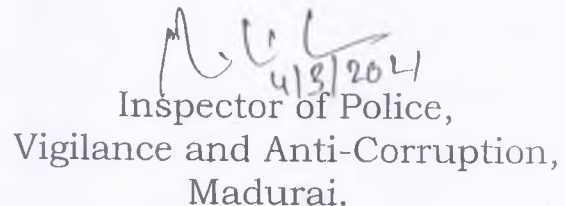 4/3/2021
Inspector of Police,
Vigilance and Anti-Corruption,
Madurai.